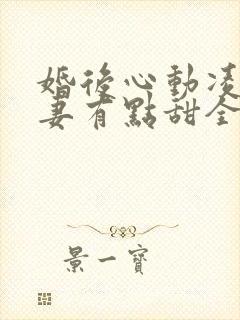 婚後心動凌
妻有點甜全
景一寶